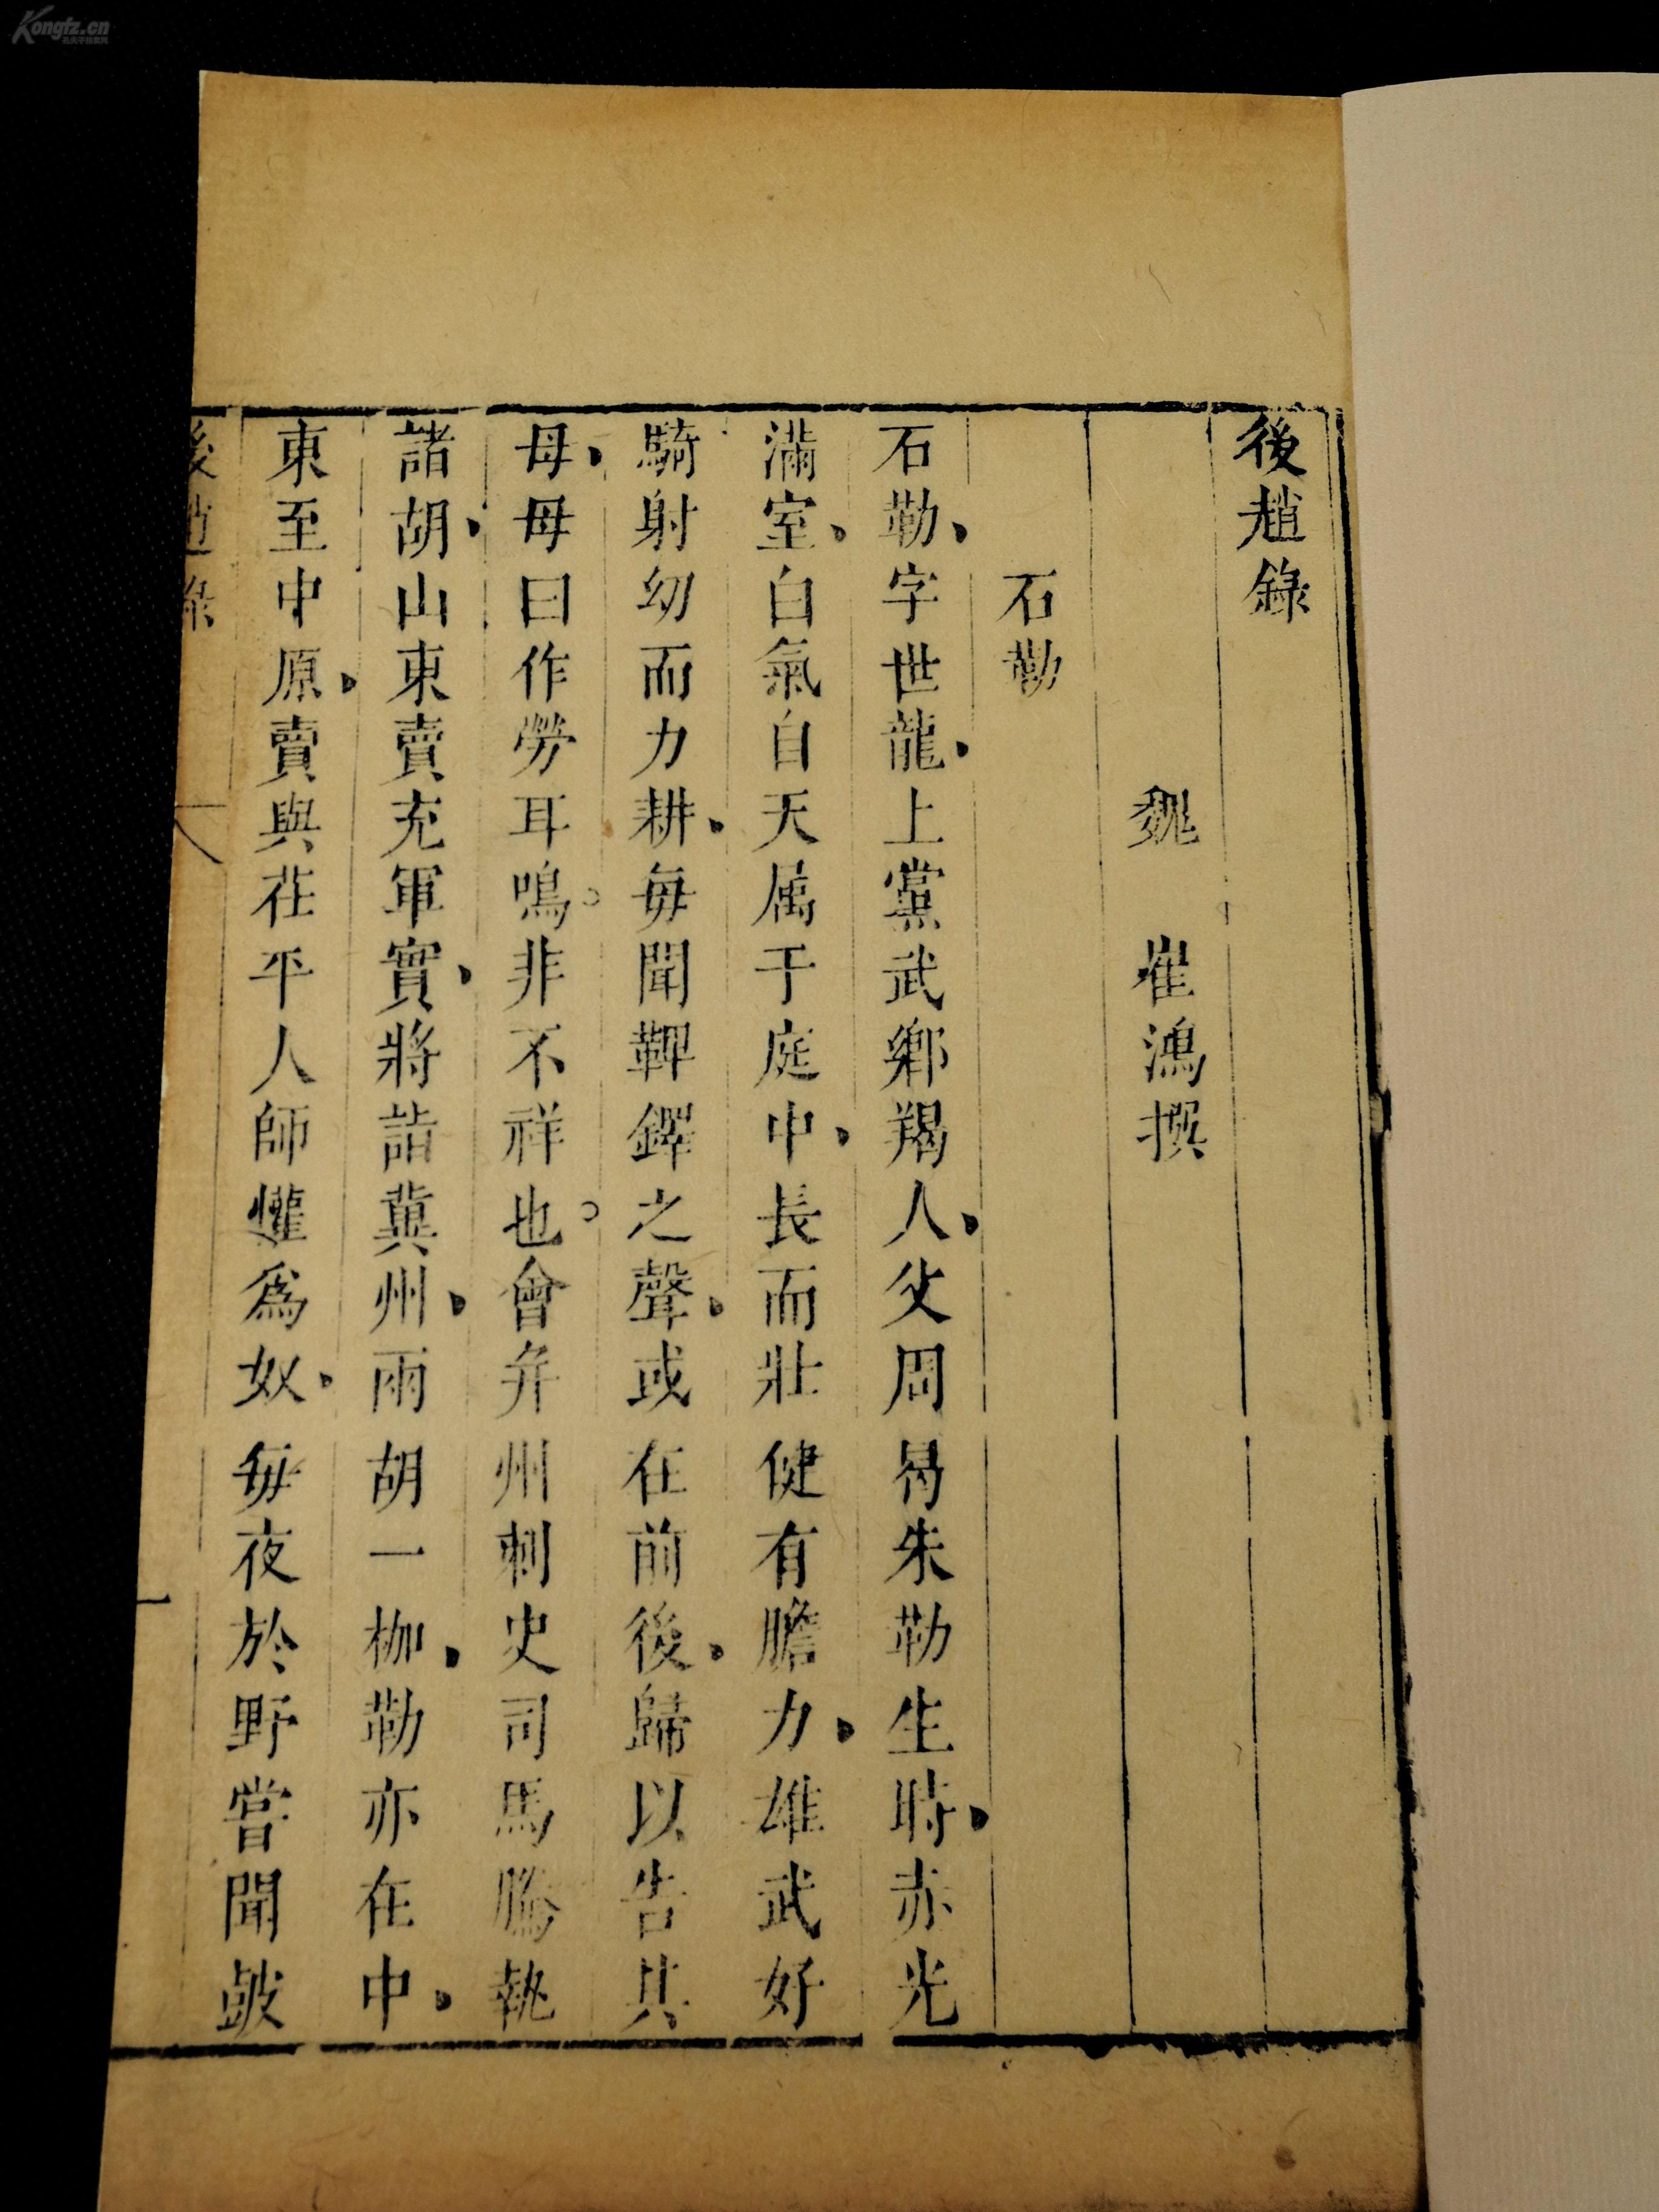 後趙錄
魏 崔鴻撰
石勒
石勒、字世龍、上黨武鄉羯人、父周曷朱勒生時、赤光
滿室、白氣自天属于庭中、長而壯健有膽力、雄武好
騎射幼而力耕、每聞鞞鐸之聲、或在前後、歸以告其
母、母曰作勞耳鳴。非不祥也。會并州刺史司馬騰執
諸胡、山東賣充軍實、將詣冀州、兩胡一枷、勒亦在中、
東至中原、賣與茌平人師懽爲奴、每夜於野嘗聞鼓
後趙錄
一
Kongfz.cn